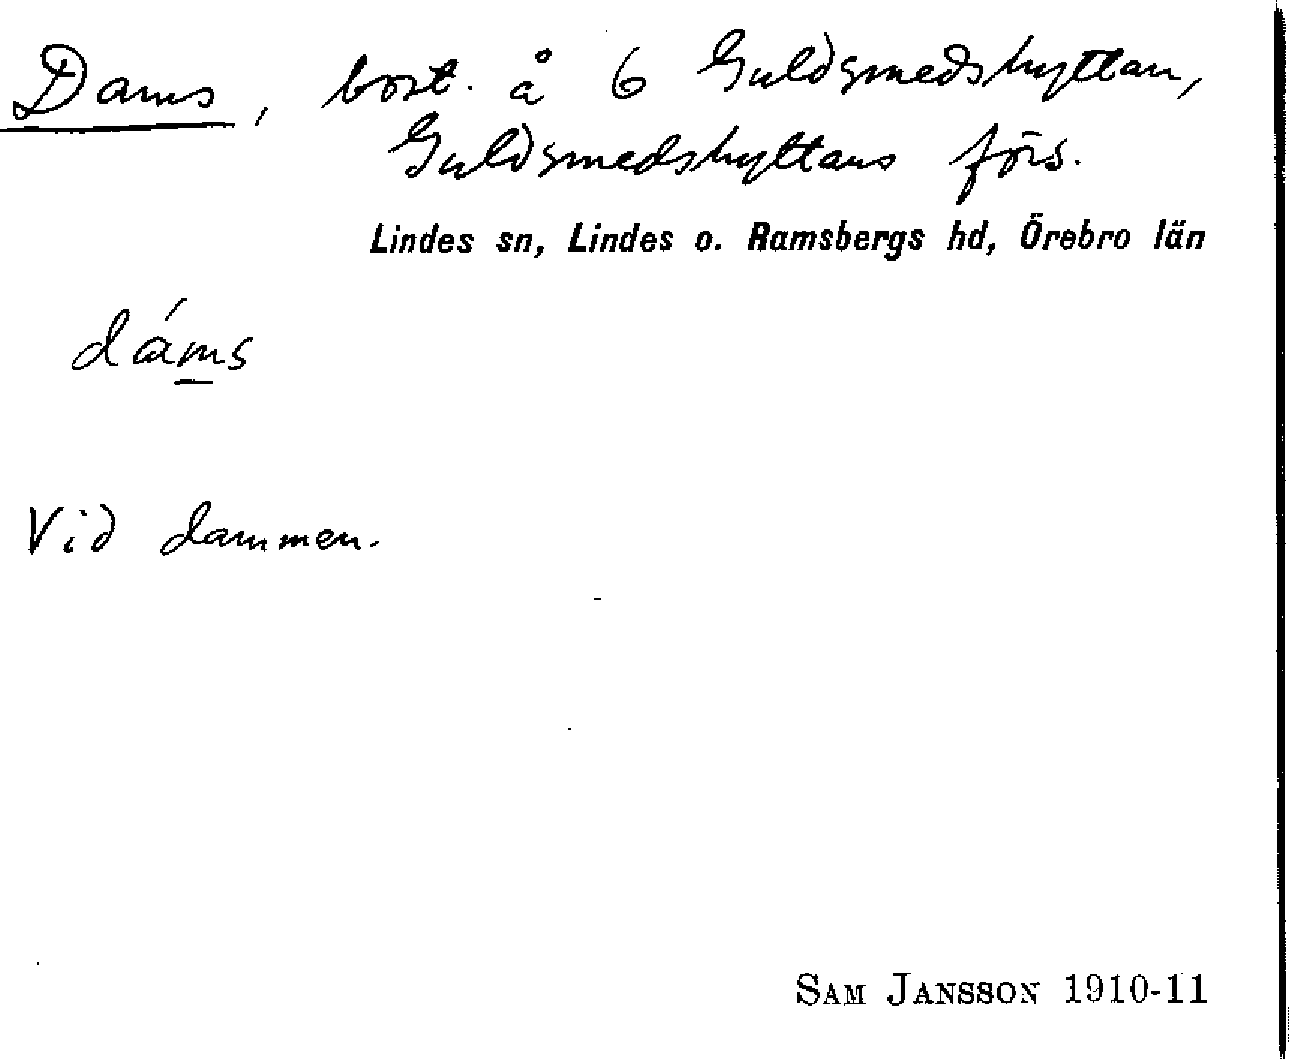 Dams, bost. å 6 Guldsmedshyttan,
Guldsmedshyttans förs.
Lindes sn, Lindes o. Ramsbergs hd, Örebro län
dáms
Vid dammen.
SAM JANSSON 1910-11